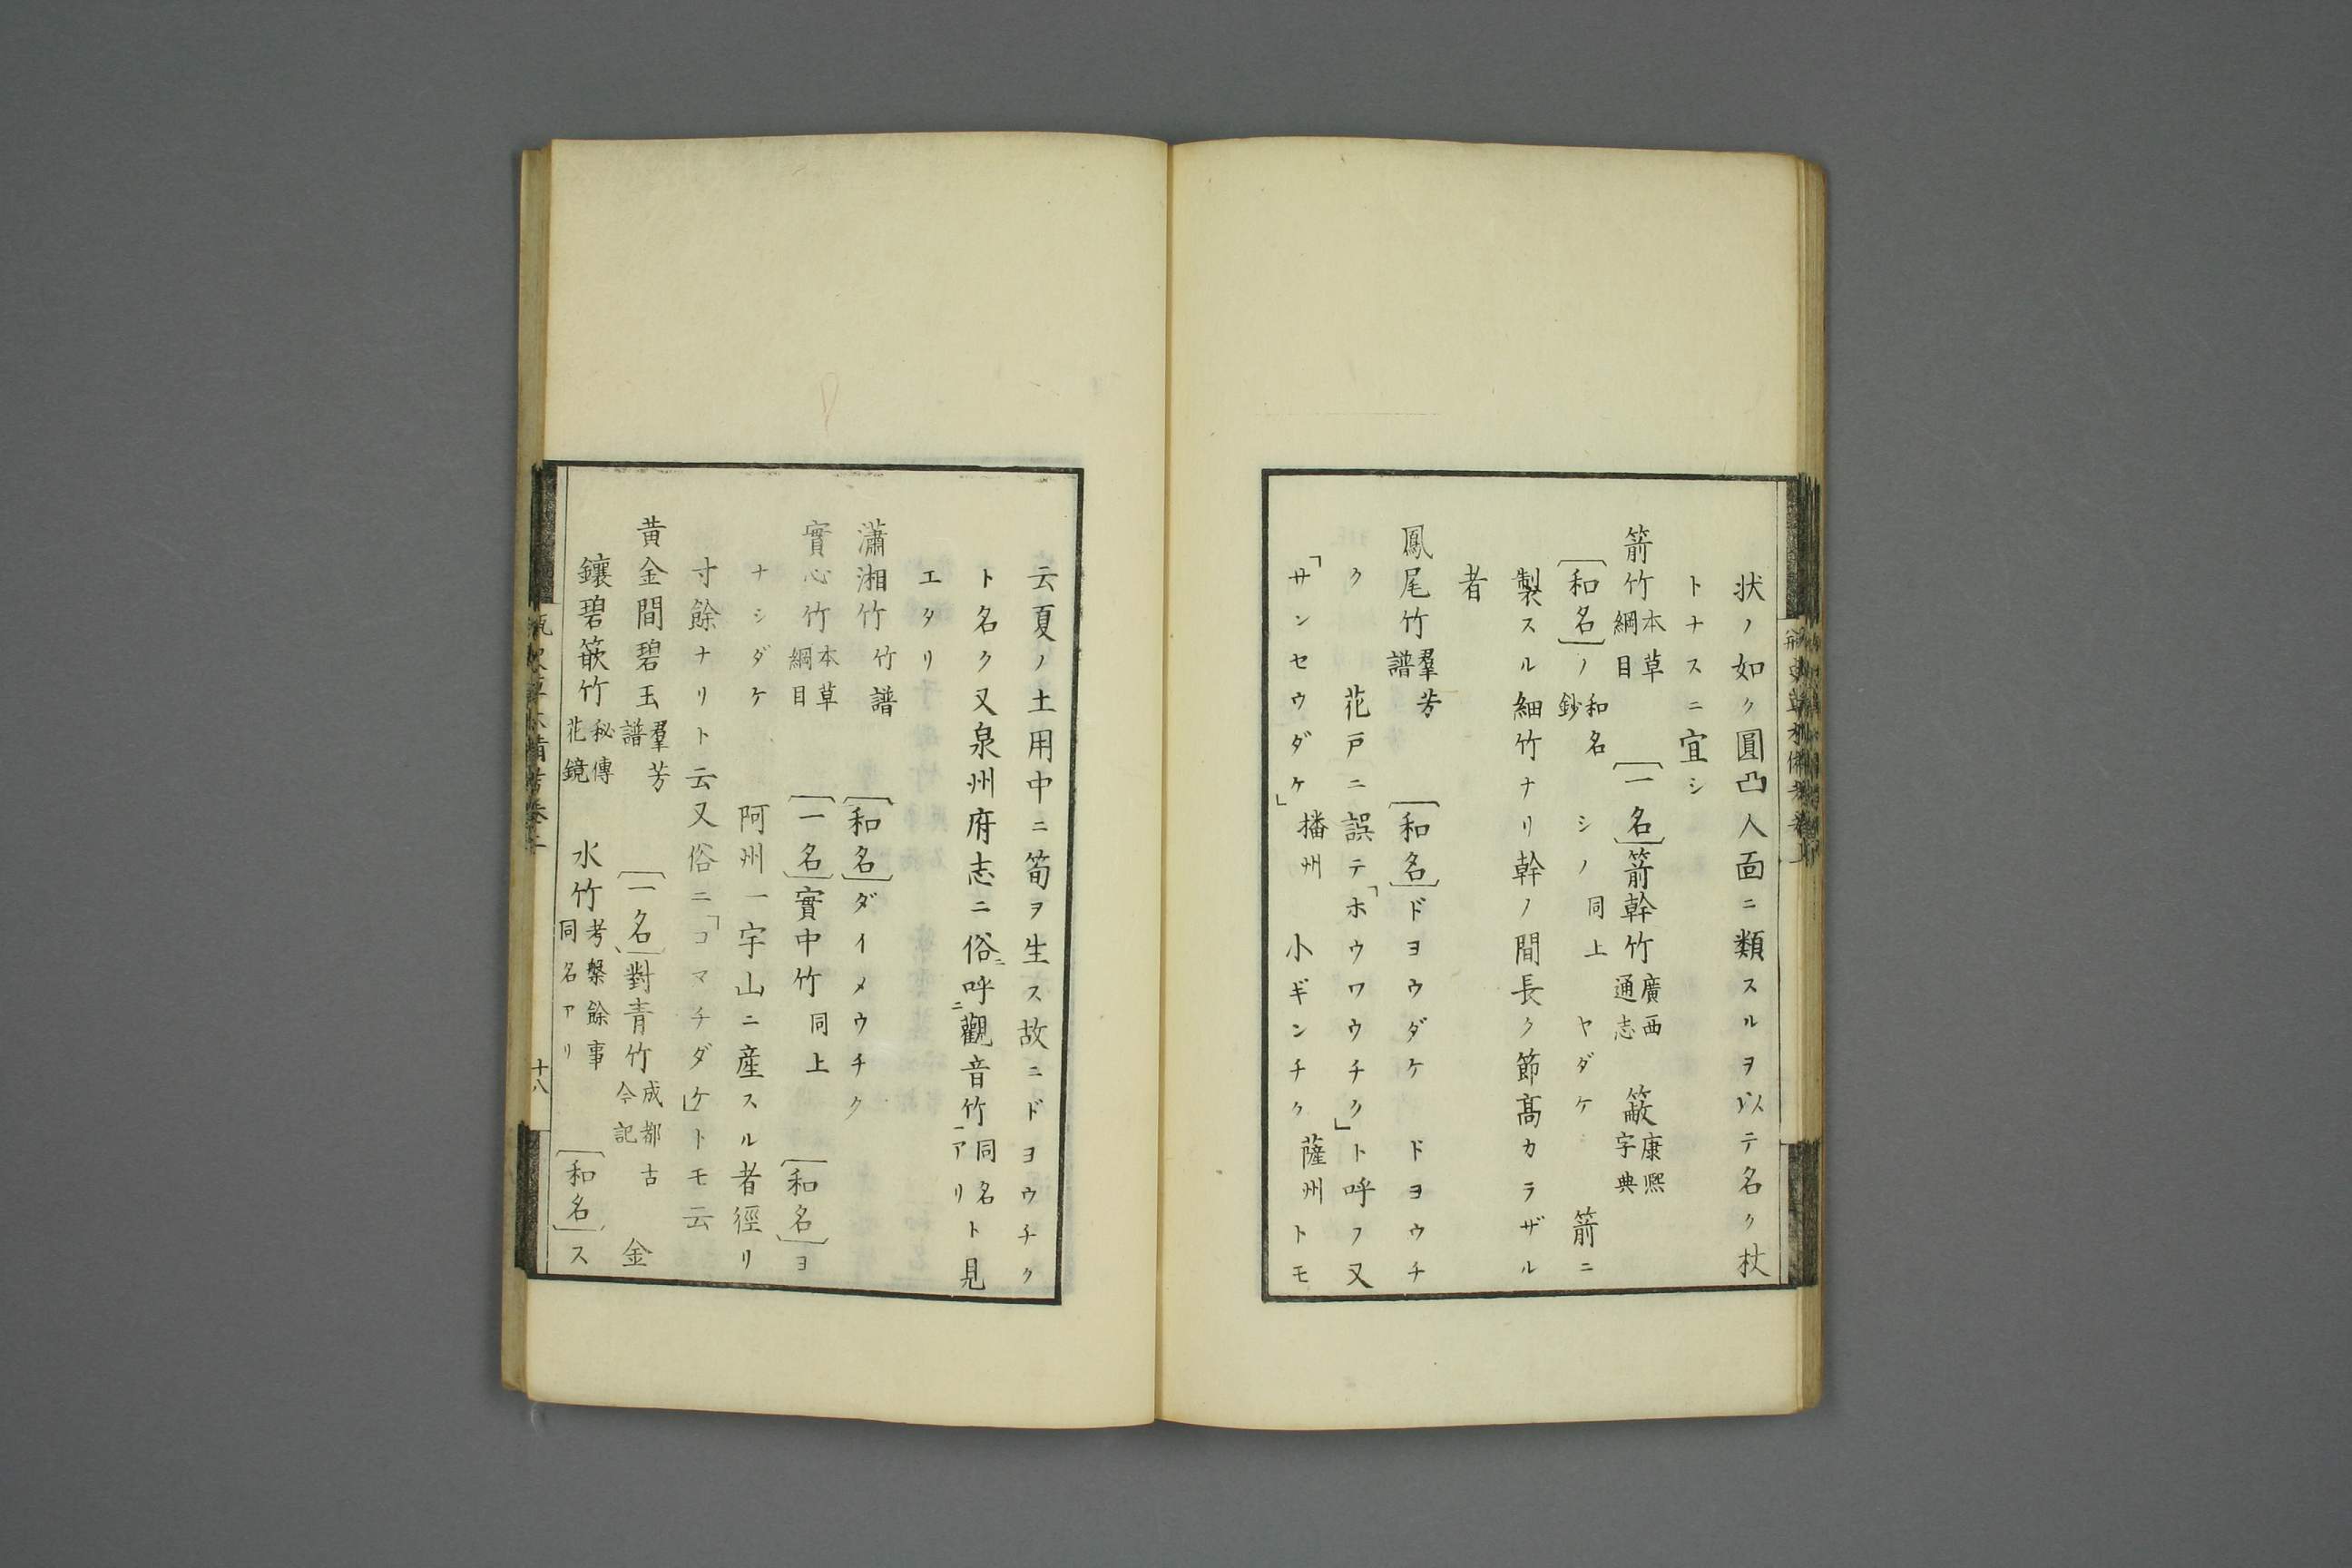 状ノ如ク圓凸人面ニ類スルヲ以テ名ク杖
トナスニ宜シ
箭竹本草綱目 [一名]箭幹竹廣西通志 簸康熙字典
[和名]ノ和名鈔 シノ同上 ヤダケ 箭ニ
製スル細竹ナリ幹ノ間長ク節高カラザル
者
鳳尾竹羣芳譜 [和名]ドヨウダケ ドヨウチ
ク 花戸ニ誤テ「ホウワウチク」ト呼フ又
「サンセウダケ」播州 小ギンチク薩州トモ
云夏ノ土用中ニ筍ヲ生ス故ニドヨウチク
ト名ク又泉州府志ニ俗ニ呼ニ觀音竹一同名アリト見
エタリ
瀟湘竹竹譜 [和名]ダイメウチク
實心竹本草綱目 [一名]實中竹同上 [和名]ヨ
ナシダケ 阿州一宇山ニ産スル者徑リ
寸餘ナリト云又俗ニ「コマチダケ」トモ云
黄金間碧玉羣芳譜 [一名]對青竹成都古今記 金
鑲碧嵌竹秘傳花鏡 水竹考槃餘事同名アリ [和名]ス
十八